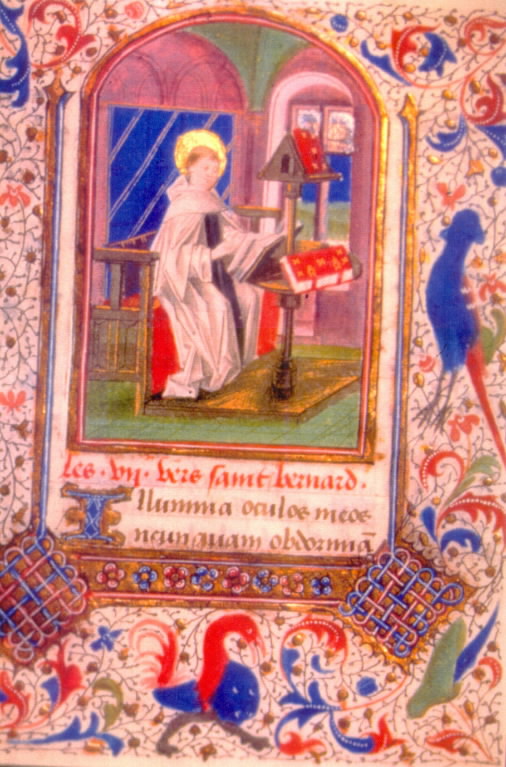 les · vij · vers saint bernard ·
Illumina oculos meos
ne unquam obdormiā